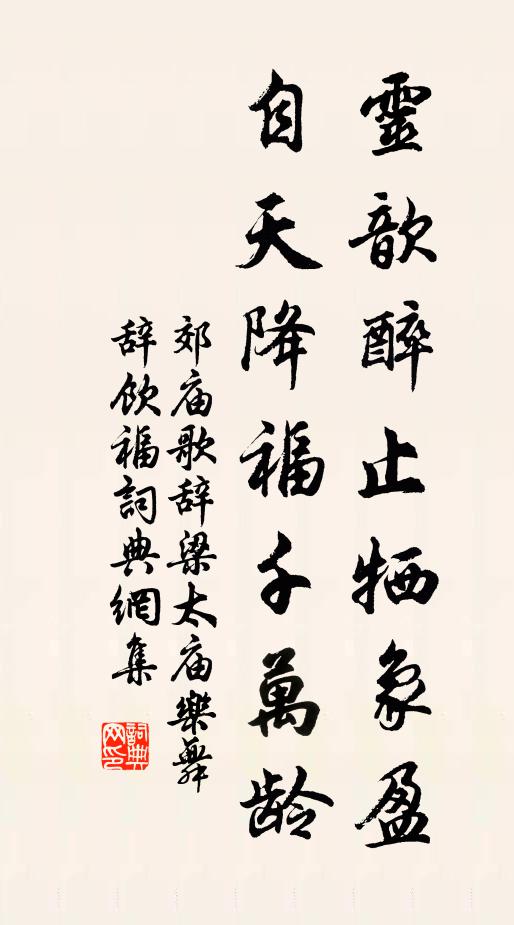 靈歆醉止牺象盈
自天降福千萬龄
郊庙歌辞梁太庙樂舞
辞飲福詞典網集
詞典网印